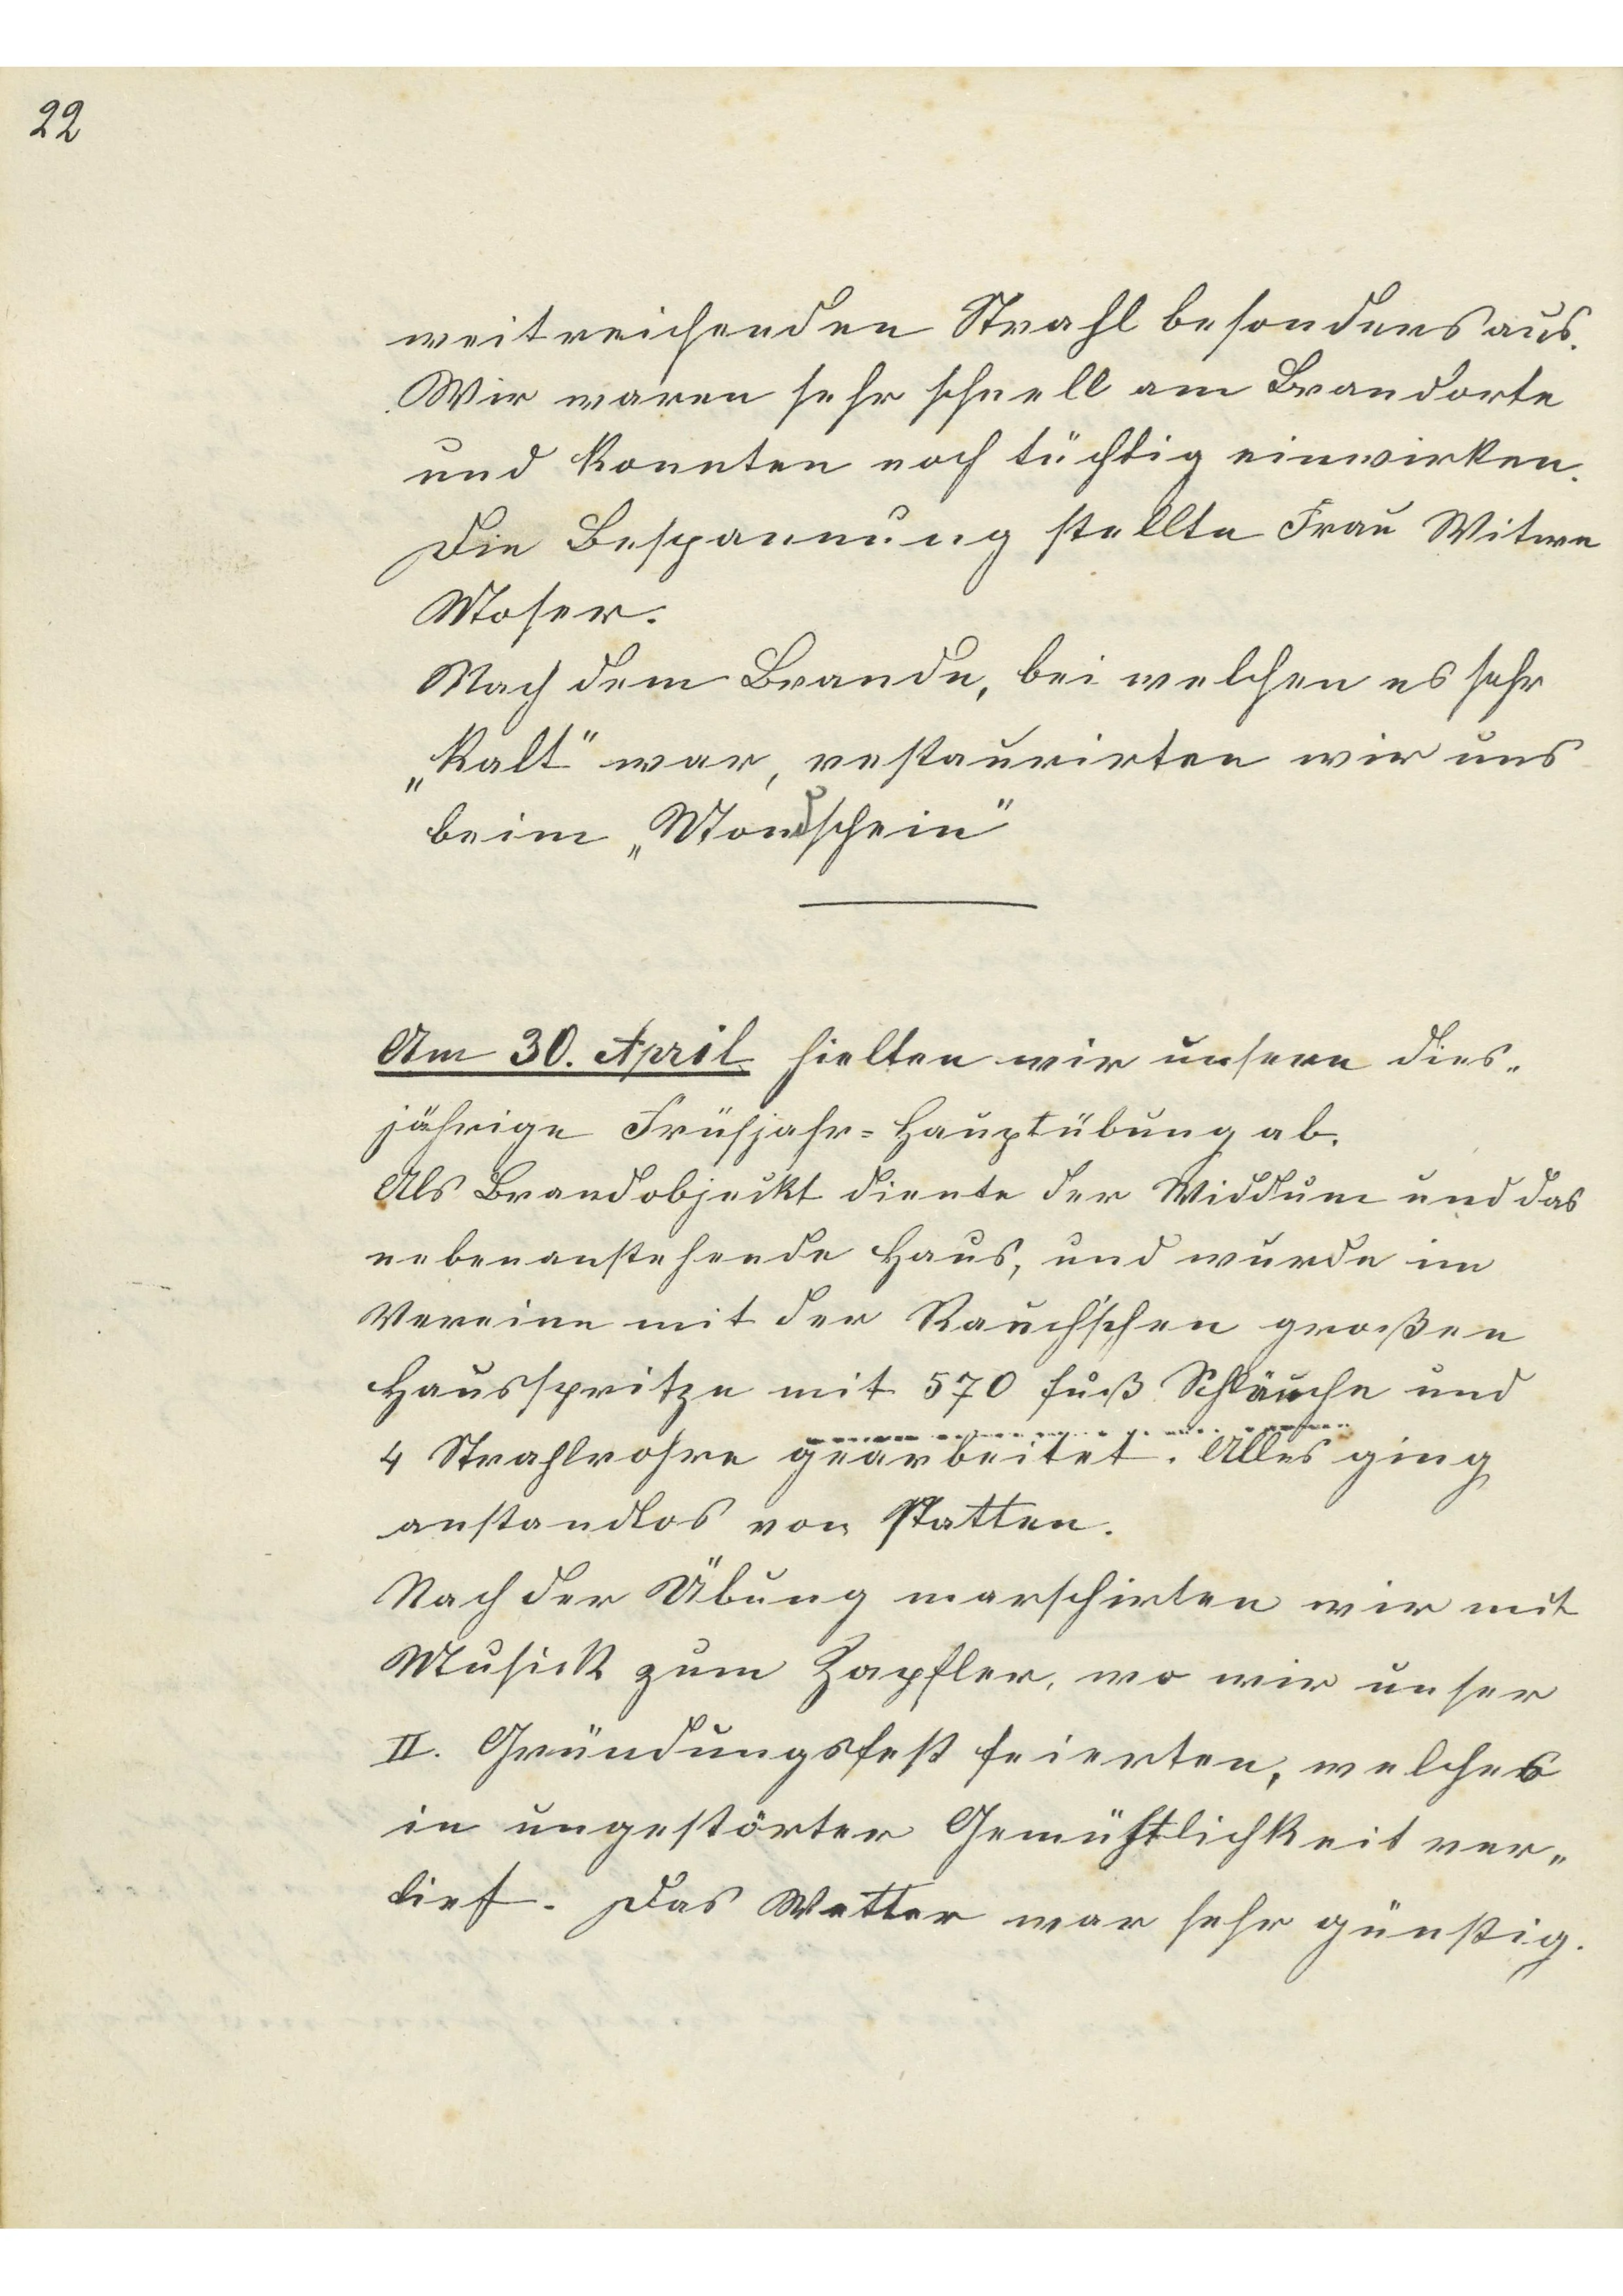 22
weitreichenden Strahl besonders aus.
Wir waren sehr schnell am Brandorte
und konnten noch tüchtig einwirken.
Die Bespannung stellte Frau Witwe
Moser.
Nach dem Brande, bei welchen es sehr
„kalt" war, restaurirten wir uns
beim „Mondschein"
Am 30. April hielten wir unsere dies„
jährige Frühjahr=Hauptübung ab.
Als Brandobjeckt diente der Widdum und das
nebenanstehende Haus, und wurde im
Vereine mit der Rauch'schen großen
Hausspritze mit 570 Fuß Schläuche und
4 Strahlrohre gearbeitet. Alles ging
anstandlos von Statten.
Nach der Übung marschirten wir mit
Musick zum Zapfler, wo wir unser
II. Gründungsfest feierten, welches
in ungestörter Gemühtlichkeit ver„
lief. Das Wetter war sehr günstig.